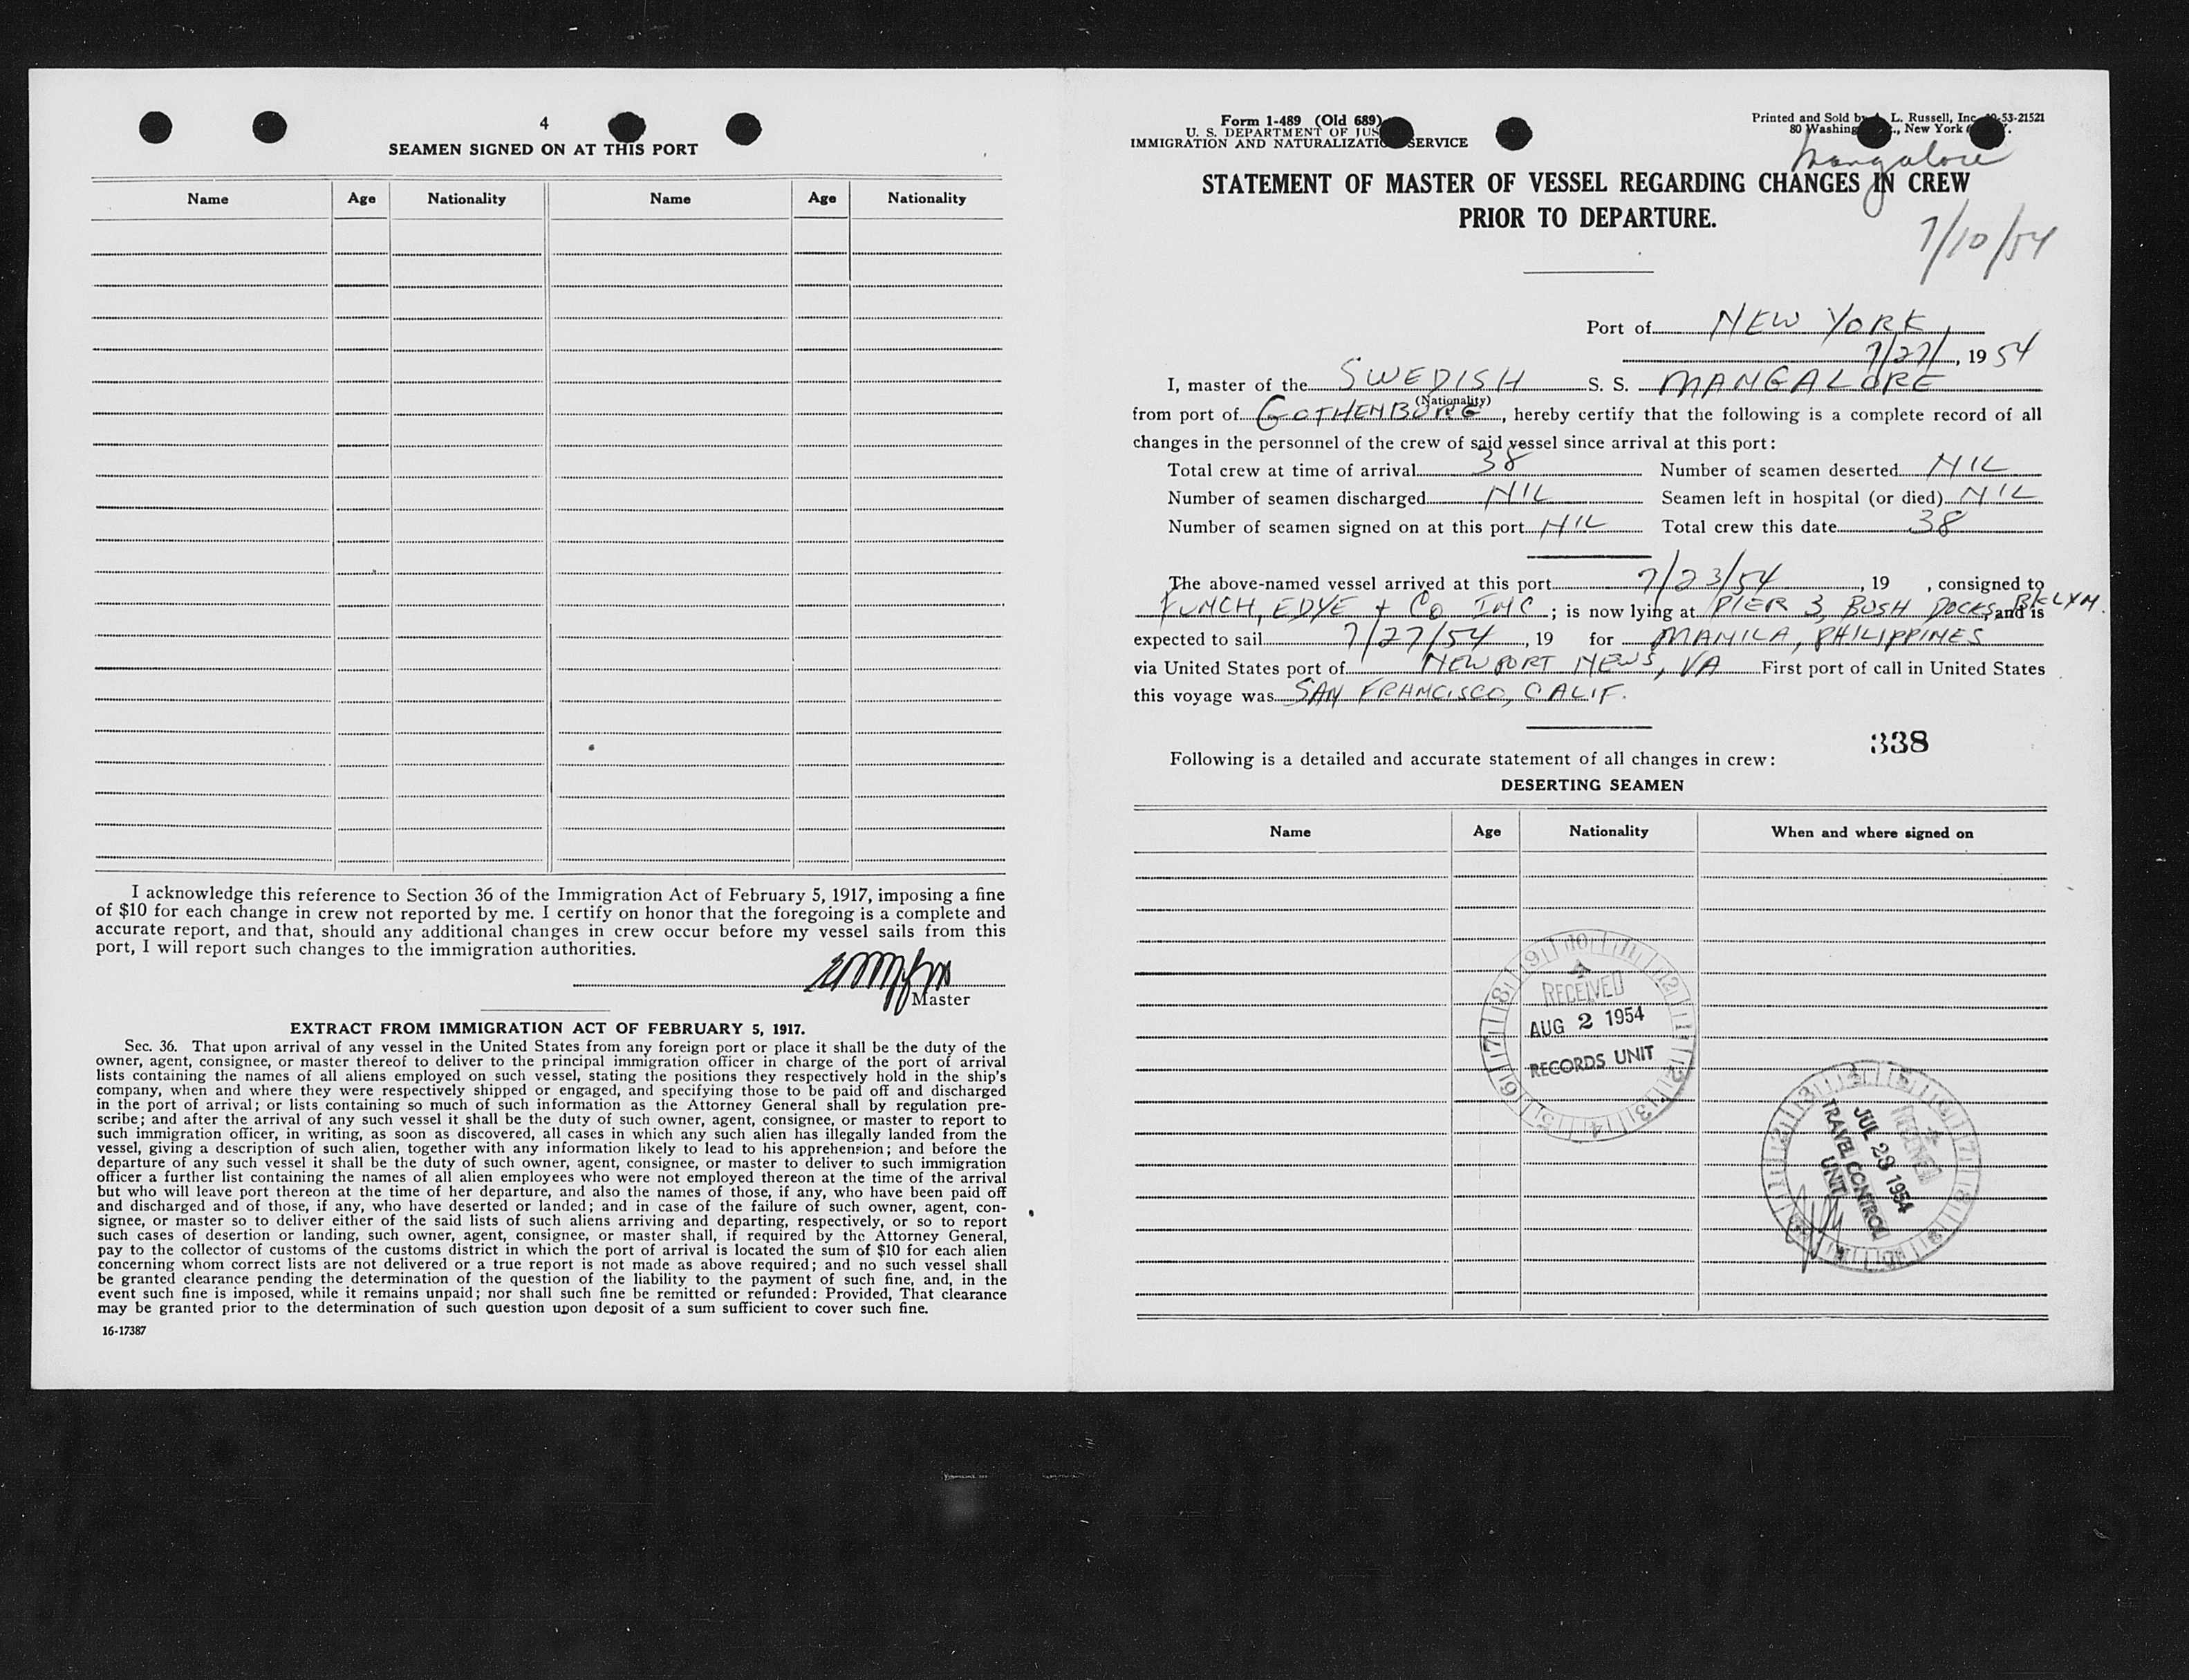 4
SEAMEN SIGNED ON AT THIS PORT
Name Age Nationality Name Age Nationality
I acknowledge this reference to Section 36 of the Immigration Act of February 5, 1917, imposing a fine
of $10 for each change in crew not reported by me. I certify on honor that the foregoing is a complete and
accurate report, and that, should any additional changes in crew occur before my vessel sails from this
port, I will report such changes to the immigration authorities.
Master
EXTRACT FROM IMMIGRATION ACT OF FEBRUARY 5, 1917.
Sec. 36. That upon arrival of any vessel in the United States from any foreign port or place it shall be the duty of the
owner, agent, consignee, or master thereof to deliver to the principal immigration officer in charge of the port of arrival
lists containing the names of all aliens employed on such vessel, stating the positions they respectively hold in the ship's
company, when and where they were respectively shipped or engaged, and specifying those to be paid off and discharged
in the port of arrival; or lists containing so much of such information as the Attorney General shall by regulation pre-
scribe; and after the arrival of any such vessel it shall be the duty of such owner, agent, consignee, or master to report to
such immigration officer, in writing, as soon as discovered, all cases in which any such alien has illegally landed from the
vessel, giving a description of such alien, together with any information likely to lead to his apprehension; and before the
departure of any such vessel it shall be the duty of such owner, agent, consignee, or master to deliver to such immigration
officer a further list containing the names of all alien employees who were not employed thereon at the time of the arrival
but who will leave port thereon at the time of her departure, and also the names of those, if any, who have been paid off
and discharged and of those, if any, who have deserted or landed; and in case of the failure of such owner, agent, con-
signee, or master so to deliver either of the said lists of such aliens arriving and departing, respectively, or so to report
such cases of desertion or landing, such owner, agent, consignee, or master shall, if required by the Attorney General,
pay to the collector of customs of the customs district in which the port of arrival is located the sum of $10 for each alien
concerning whom correct lists are not delivered or a true report is not made as above required; and no such vessel shall
be granted clearance pending the determination of the question of the liability to the payment of such fine, and, in the
event such fine is imposed, while it remains unpaid; nor shall such fine be remitted or refunded: Provided, That clearance
may be granted prior to the determination of such question upon deposit of a sum sufficient to cover such fine.
16-17387
Form 1-489 (Old 689)
U. S. DEPARTMENT OF JUS
IMMIGRATION AND NATURALIZATIO SERVICE
Printed and Sold by L. Russell, Inc. -53-21521
80 Washing , New York
Mangalore
STATEMENT OF MASTER OF VESSEL REGARDING CHANGES IN CREW
PRIOR TO DEPARTURE.
7/10/54
Port of NEW YORK,
7/27/, 1954
I, master of the SWEDISH S. S. MANGALORE
(Nationality)
from port of GOTHENBURG, hereby certify that the following is a complete record of all
changes in the personnel of the crew of said vessel since arrival at this port:
Total crew at time of arrival 38 Number of seamen deserted NIL
Number of seamen discharged NIL Seamen left in hospital (or died) NIL
Number of seamen signed on at this port NIL Total crew this date 38
The above-named vessel arrived at this port 7/23/54, 19 , consigned to
FUNCH, EDYE + CO INC; is now lying at PIER 3, BUSH DOCKS, BKLYN. and is
expected to sail 7/27/54, 19 for MANILA, PHILIPPINES
via United States port of NEWPORT NEWS, VA First port of call in United States
this voyage was SAN FRANCISCO, CALIF.
338
Following is a detailed and accurate statement of all changes in crew:
DESERTING SEAMEN
Name Age Nationality When and where signed on
RECEIVED
AUG 2 1954
RECORDS UNIT
RECEIVED
JUL 29 1954
TRAVEL CONTROL
UNIT